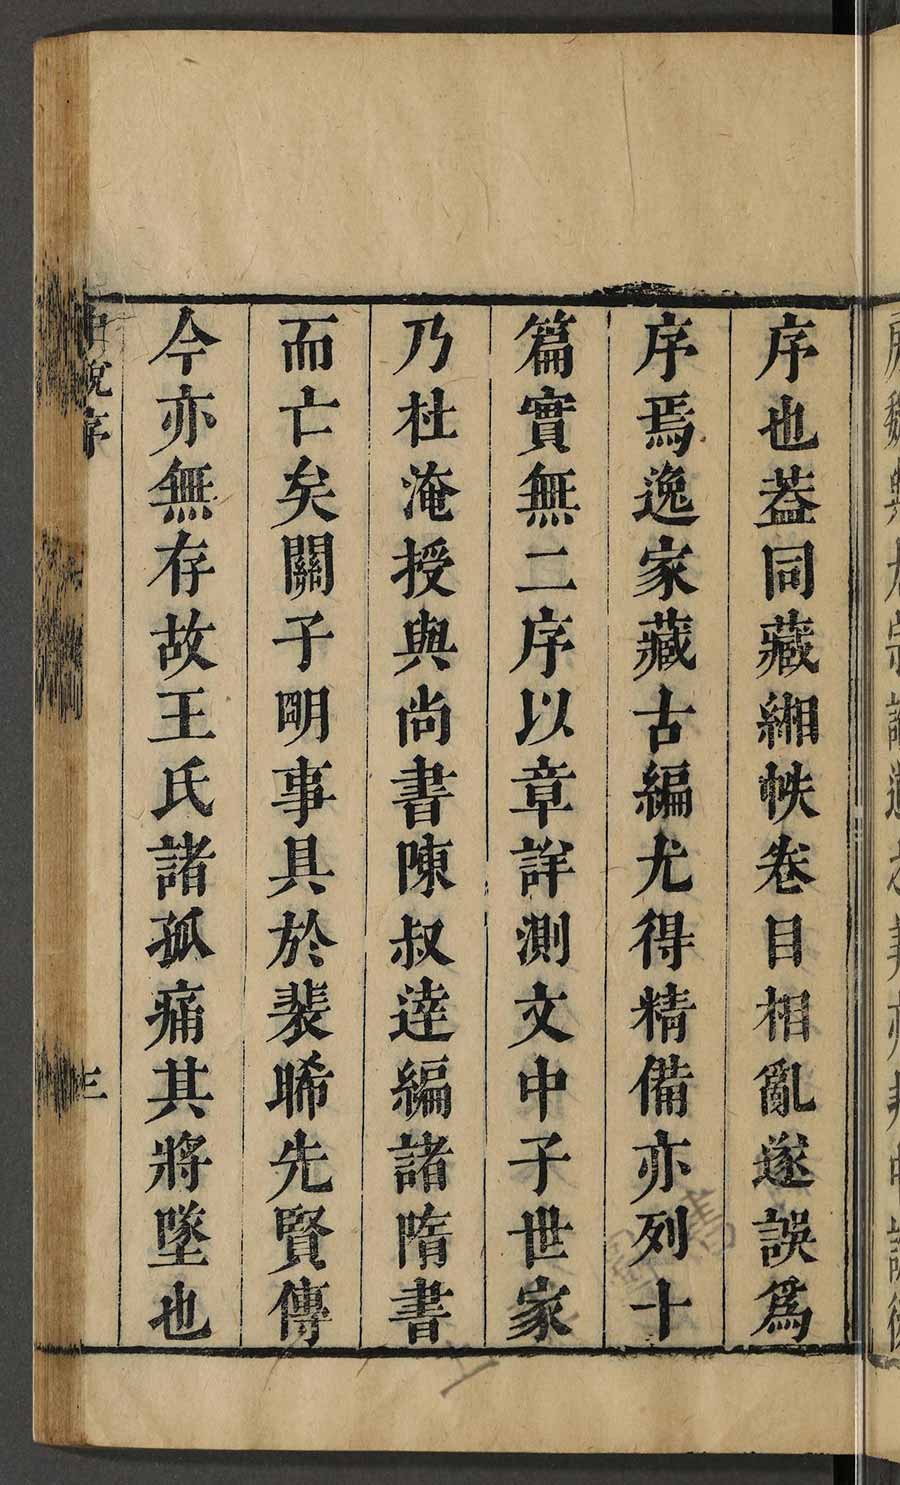 序也葢同藏緗帙卷目相亂遂誤爲
序焉逸家藏古編尤得精備亦列十
篇實無二序以章詳測文中子世家
乃杜淹授與尚書陳叔達編諸隋書
而亡矣關子明事具於裴晞先賢傳
今亦無存故王氏諸孤痛其將墜也
中說序
三